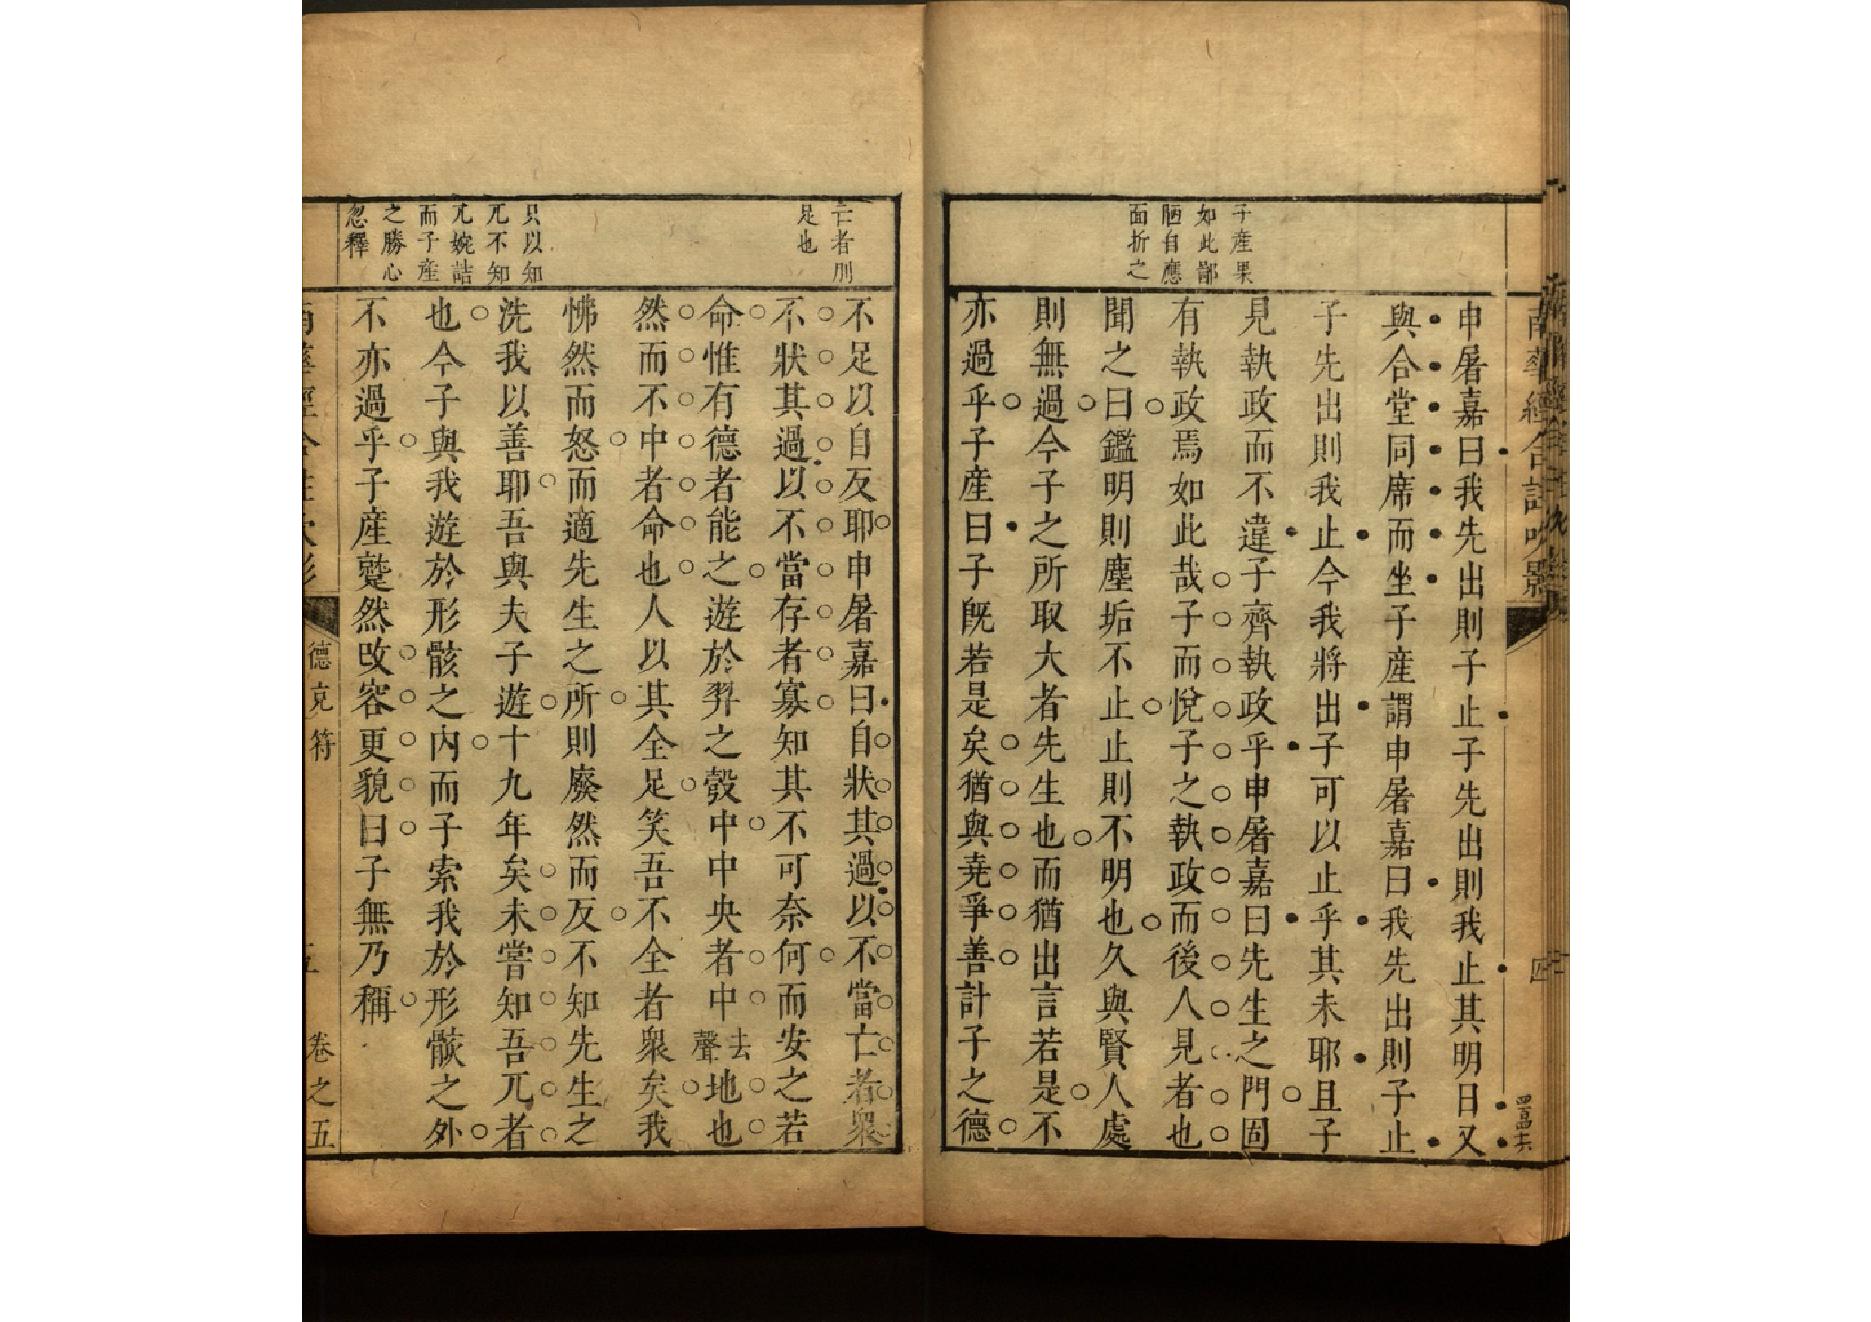 南華經合註吹影
四
子產果
如此鄙
陋自應
面折之
申屠嘉曰我先出則子止子先出則我止其明日又
與合堂同席而坐子產謂申屠嘉曰我先出則子止
子先出則我止今我將出子可以止乎其未耶且子
見執政而不違子齊執政乎申屠嘉曰先生之門固
有執政焉如此哉子而悅子之執政而後人見者也
聞之曰鑑明則塵垢不止止則不明也久與賢人處
則無過今子之所取大者先生也而猶出言若是不
亦過乎子產曰子旣若是矣猶與堯爭善計子之德
亡者則
是也
只以知
兀不知
兀婉詰
而子產
之勝心
忽釋
不足以自反耶申屠嘉曰自狀其過以不當亡者衆
不狀其過以不當存者寡知其不可奈何而安之若
命惟有德者能之遊於羿之彀中中央者中去聲地也
然而不中者命也人以其全足笑吾不全者衆矣我
怫然而怒而適先生之所則廢然而反不知先生之
洗我以善耶吾與夫子遊十九年矣未嘗知吾兀者
也今子與我遊於形骸之內而子索我於形骸之外
不亦過乎子產蹵然改容更貌曰子無乃稱
南華經合註吹影
德充符
五
卷之五